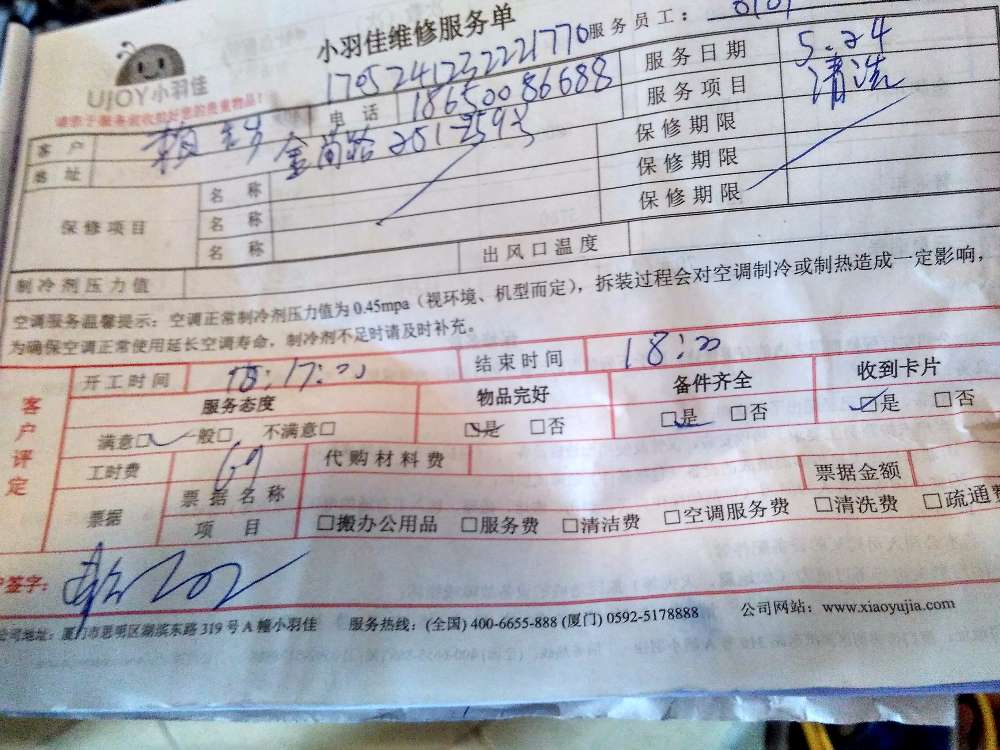 小羽佳维修服务单
UJOY小羽佳
服务员工：
17052412322221770
服务日期 5.24
客户 赖 电话 18650086688 服务项目 清洗
地址 金尚路251-259号 保修期限
保修项目 名称 保修期限
名称 保修期限
名称 出风口温度
制冷剂压力值
空调服务温馨提示：空调正常制冷剂压力值为0.45mpa（视环境、机型而定），拆装过程会对空调制冷或制热造成一定影响，
为确保空调正常使用延长空调寿命，制冷剂不足时请及时补充。
客户评定
开工时间 17:00 结束时间 18:00
服务态度 物品完好 备件齐全 收到卡片
满意□ 一般□ 不满意□ □是 □否 □是 □否 □是 □否
工时费 69 代购材料费
票据 票据名称 票据金额
项目 □搬办公用品 □服务费 □清洁费 □空调服务费 □清洗费 □疏通费
签字：
公司地址：厦门市思明区湖滨东路319号A幢小羽佳 服务热线：(全国) 400-6655-888 (厦门) 0592-5178888 公司网站：www.xiaoyujia.com